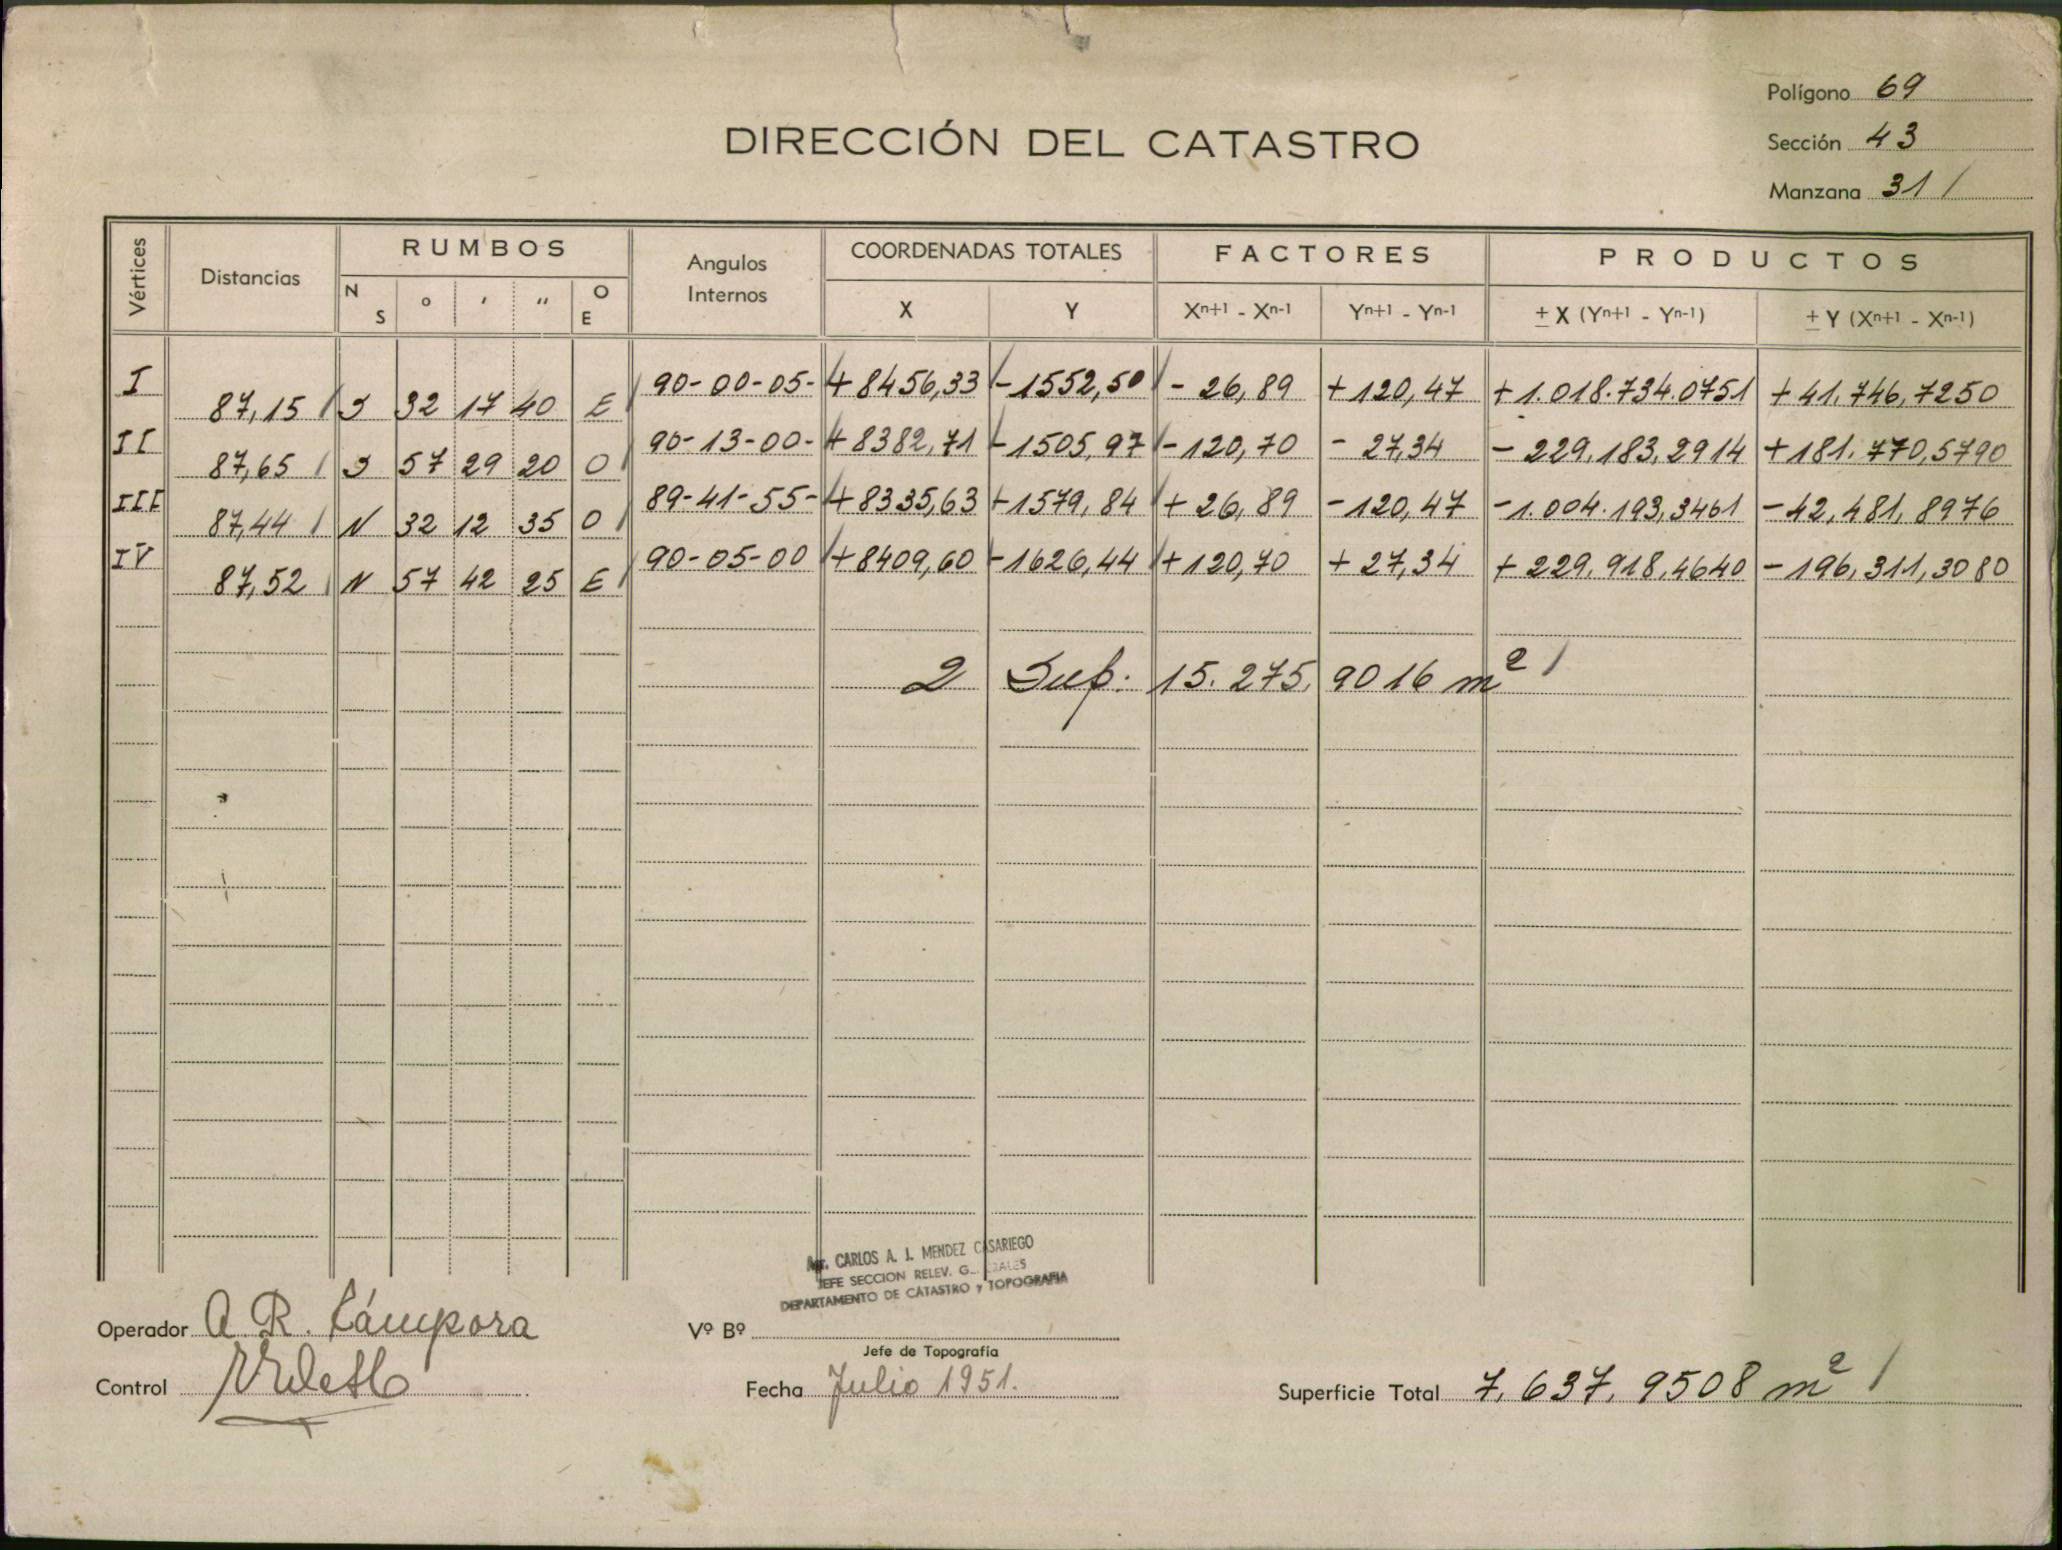 Polígono 69
DIRECCIÓN DEL CATASTRO
Sección 43
Manzana 31 /
Vértices Distancias RUMBOS Angulos Internos COORDENADAS TOTALES FACTORES PRODUCTOS
N S ° ' " O E X Y Xn+1 - Xn-1 Yn+1 - Yn-1 ± X (Yn+1 - Yn-1) ± Y (Xn+1 - Xn-1)
I 90-00-05- +8456,33 -1552,50 - 26,89 +120,47 +1.018.734.0751 +41.746,7250
87,15 S 32 17 40 E
II 90-13-00- +8382,71 -1505,97 -120,70 - 27,34 - 229.183,2914 +181.770,5790
87,65 S 57 29 20 O
III 89-41-55- +8335,63 -1579,84 + 26,89 -120,47 -1.004.193,3461 -42,481,8976
87,44 N 32 12 35 O
IV 90-05-00 +8409,60 -1626,44 +120,70 + 27,34 + 229.918,4640 -196,311,3080
87,52 N 57 42 25 E
2 Sup. 15.275,9016 m² /
Agr. CARLOS A. J. MENDEZ CASARIEGO
JEFE SECCION RELEV.
DEPARTAMENTO DE CATASTRO y TOPOGRAFIA
Operador A. R. Cámpora
Vº Bº
Jefe de Topografía
Control
Fecha Julio 1951.
Superficie Total 7.637,9508 m² /